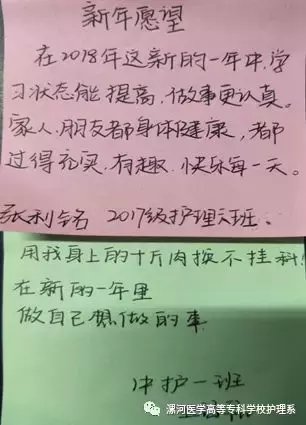 新年愿望
在2018年这新的一年中,学
习状态能提高,做事更认真。
家人、朋友都身体健康,都
过得充实,有趣,快乐每一天。
张利铭 2017级护理六班。
用我身上的十斤肉换不挂科!
在新的一年里
做自己想做的事
冲护一班
漯河医学高等专科学校护理系